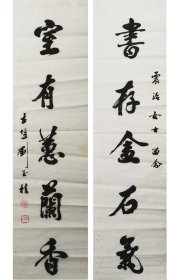 書存金石氣
震海女士留念
室有蕙蘭香
長監劉玉樓